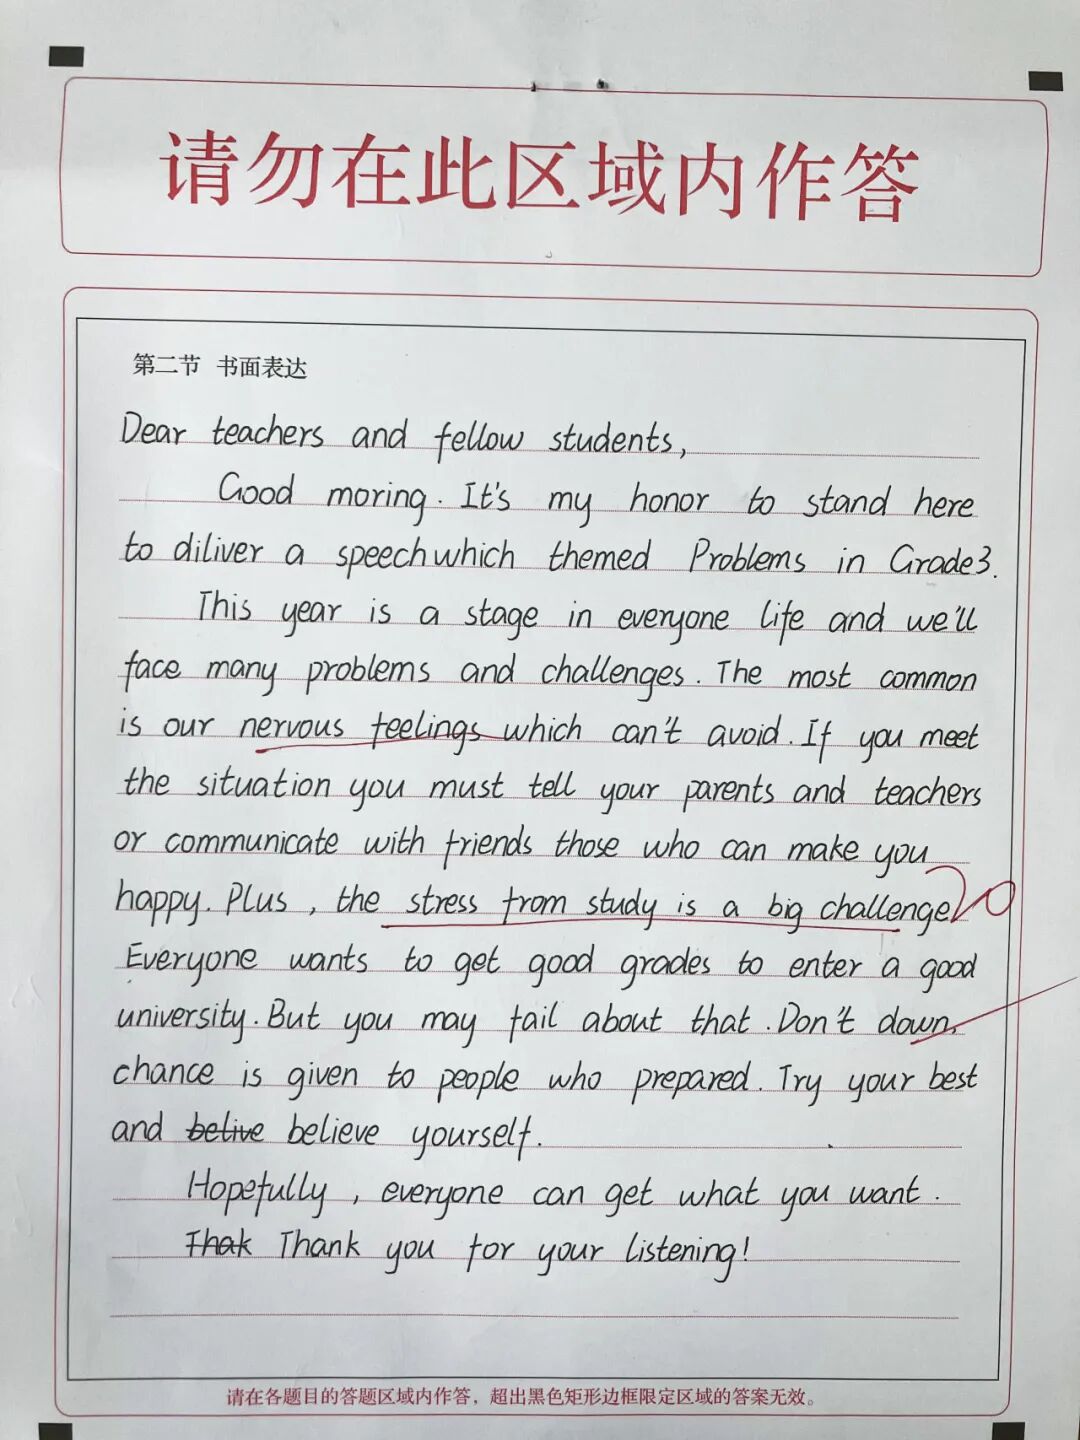 请勿在此区域内作答
第二节 书面表达
Dear teachers and fellow students,
Good moring. It's my honor to stand here
to diliver a speech which themed Problems in Grade3.
This year is a stage in everyone life and we'll
face many problems and challenges. The most common
is our nervous feelings which can't avoid. If you meet
the situation you must tell your parents and teachers
or communicate with friends those who can make you
happy. Plus, the stress from study is a big challenge. 20
Everyone wants to get good grades to enter a good
university. But you may fail about that. Don't down,
chance is given to people who prepared. Try your best
and belive believe yourself.
Hopefully, everyone can get what you want.
Thak Thank you for your listening!
请在各题目的答题区域内作答，超出黑色矩形边框限定区域的答案无效。